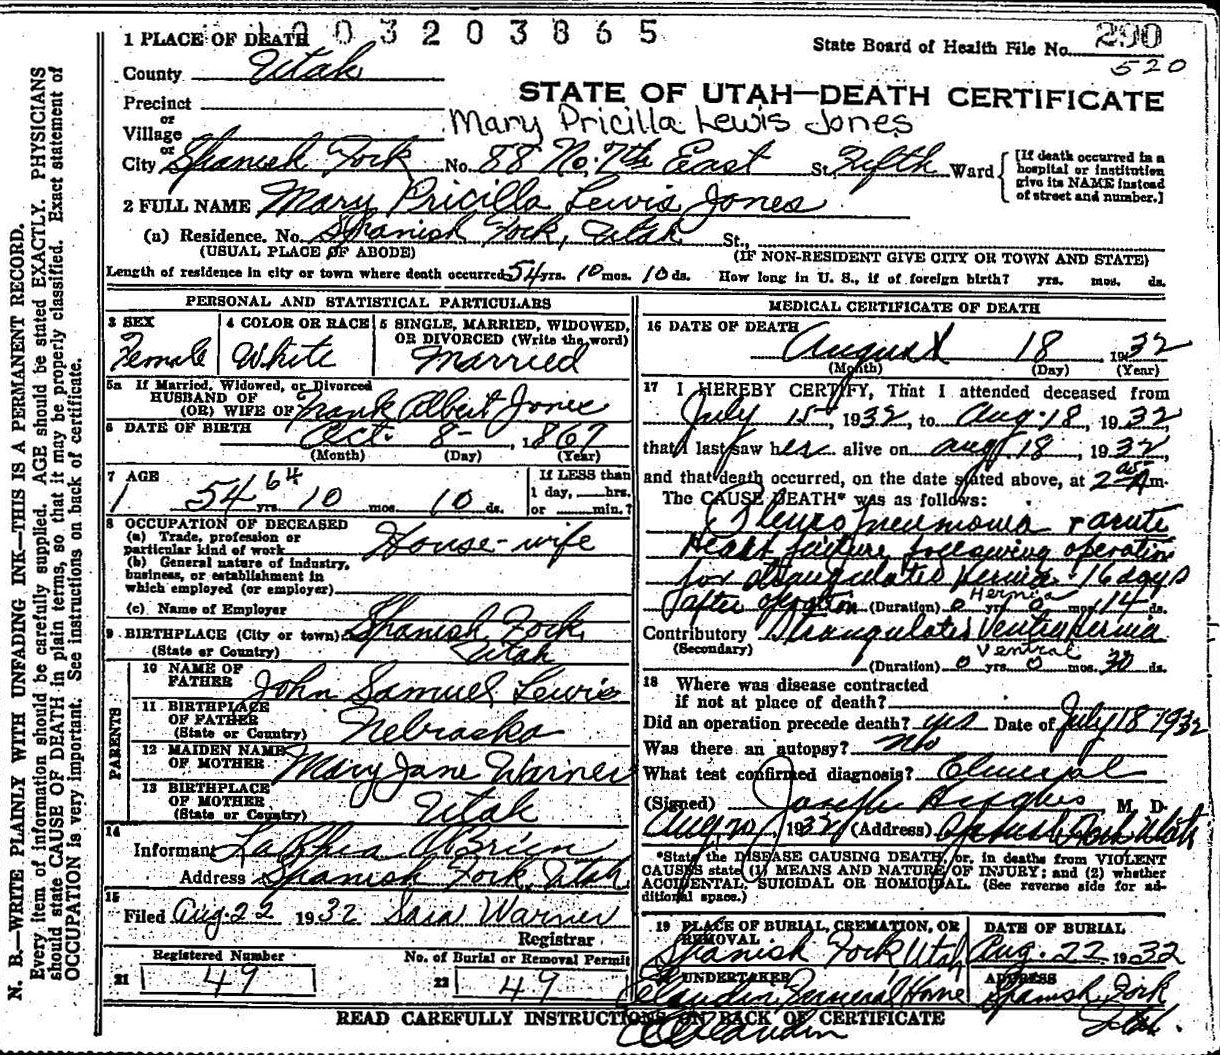 1003203865
1 PLACE OF DEATH
State Board of Health File No. 290
520
County Utah
STATE OF UTAH—DEATH CERTIFICATE
Precinct
or
Village
Mary Pricilla Lewis Jones
or
City Spanish Fork No. 88 No. 7th East St. Fifth Ward { [If death occurred in a hospital or institution give its NAME instead of street and number.]
2 FULL NAME Mary Pricilla Lewis Jones
(a) Residence. No. Spanish Fork, Utah St.,
(USUAL PLACE OF ABODE) (IF NON-RESIDENT GIVE CITY OR TOWN AND STATE)
Length of residence in city or town where death occurred 54 yrs. 10 mos. 10 ds. How long in U. S., if of foreign birth? yrs. mos. ds.
PERSONAL AND STATISTICAL PARTICULARS
3 SEX 4 COLOR OR RACE 5 SINGLE, MARRIED, WIDOWED,
OR DIVORCED (Write the word)
Female White Married
5a If Married, Widowed, or Divorced
HUSBAND OF
(OR) WIFE OF Frank Albert Jones
6 DATE OF BIRTH Oct. 8- , 1867
(Month) (Day) (Year)
7 AGE 64 If LESS than
1 54 yrs. 10 mos. 10 ds. 1 day, hrs.
or min.?
8 OCCUPATION OF DECEASED
(a) Trade, profession or
particular kind of work House-wife
(b) General nature of industry,
business, or establishment in
which employed (or employer)
(c) Name of Employer
9 BIRTHPLACE (City or town) Spanish Fork
(State or Country) Utah
PARENTS
10 NAME OF
FATHER John Samuel Lewis
11 BIRTHPLACE
OF FATHER
(State or Country) Nebraska
12 MAIDEN NAME
OF MOTHER Mary Jane Warner
13 BIRTHPLACE
OF MOTHER
(State or Country) Utah
14
Informant O'Brien
Address Spanish Fork, Utah
15
Filed Aug. 22 1932 Sara Warner
Registrar
Registered Number No. of Burial or Removal Permit
21 49 22 49
MEDICAL CERTIFICATE OF DEATH
16 DATE OF DEATH
August 18 1932
(Month) (Day) (Year)
17 I HEREBY CERTIFY, That I attended deceased from
July 15, 1932, to Aug. 18, 1932
that I last saw her alive on Aug 18, 1932,
and that death occurred, on the date stated above, at 2 A m.
The CAUSE DEATH* was as follows:
Pleuro pneumonia & acute
Heart failure following operation
for strangulated hernia - 16 days
Hernia
after operation (Duration) 0 yrs. 0 mos. 14 ds.
Contributory Strangulated Ventral hernia
(Secondary) Ventral
(Duration) 0 yrs. 0 mos. 30 ds.
18 Where was disease contracted
if not at place of death?
Did an operation precede death? yes Date of July 18 1932
Was there an autopsy? No
What test confirmed diagnosis? Clinical
(Signed) Joseph Hughes M. D.
Aug 20, 1932 (Address) Spanish Fork Utah
*State the DISEASE CAUSING DEATH, or, in deaths from VIOLENT
CAUSES state (1) MEANS AND NATURE OF INJURY; and (2) whether
ACCIDENTAL, SUICIDAL OR HOMICIDAL. (See reverse side for ad-
ditional space.)
19 PLACE OF BURIAL, CREMATION, OR DATE OF BURIAL
REMOVAL
Spanish Fork Utah Aug. 22 1932
UNDERTAKER ADDRESS
Claudin Funeral Home Spanish Fork
Utah.
Claudin
READ CAREFULLY INSTRUCTIONS ON BACK OF CERTIFICATE
N. B.—WRITE PLAINLY WITH UNFADING INK—THIS IS A PERMANENT RECORD.
Every item of information should be carefully supplied. AGE should be stated EXACTLY. PHYSICIANS
should state CAUSE OF DEATH in plain terms, so that it may be properly classified. Exact statement of
OCCUPATION is very important. See instructions on back of certificate.